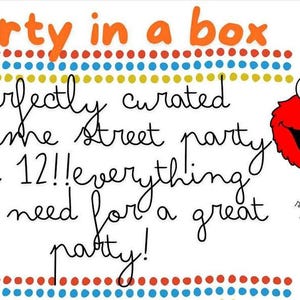 rty in a box
rfectly curated
me street party
12!!everything
need for a great
party!